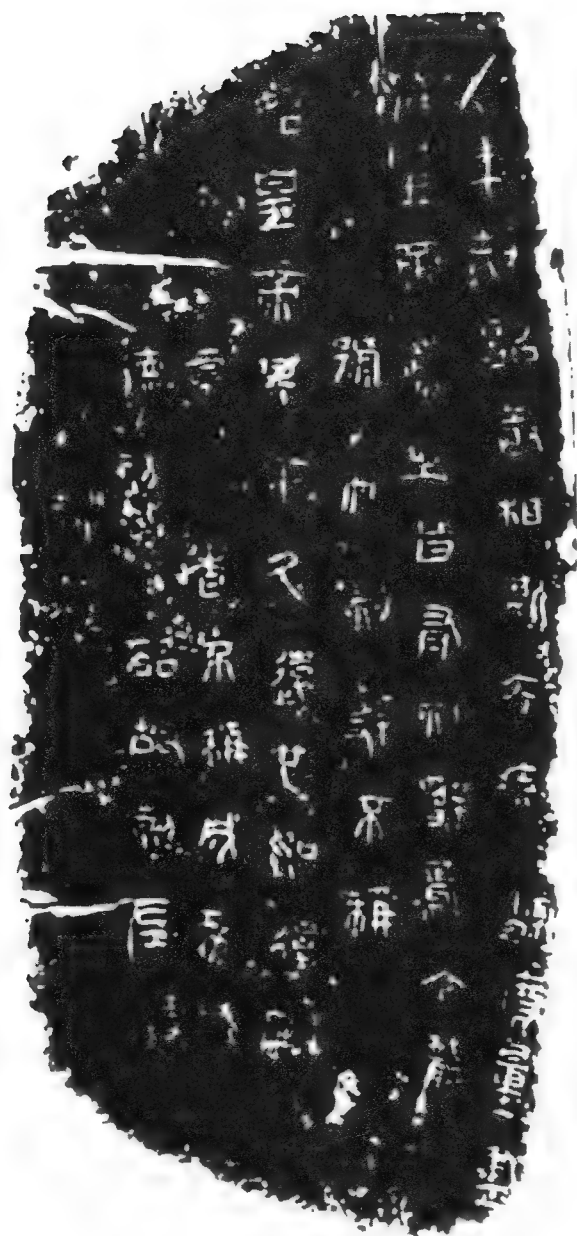 年制詔丞相斯去疾法度量盡
始皇帝為之皆有刻辭焉今襲
號而刻辭不稱
始皇帝其於久遠也如後嗣
為者不稱成功
德刻詔故刻左使